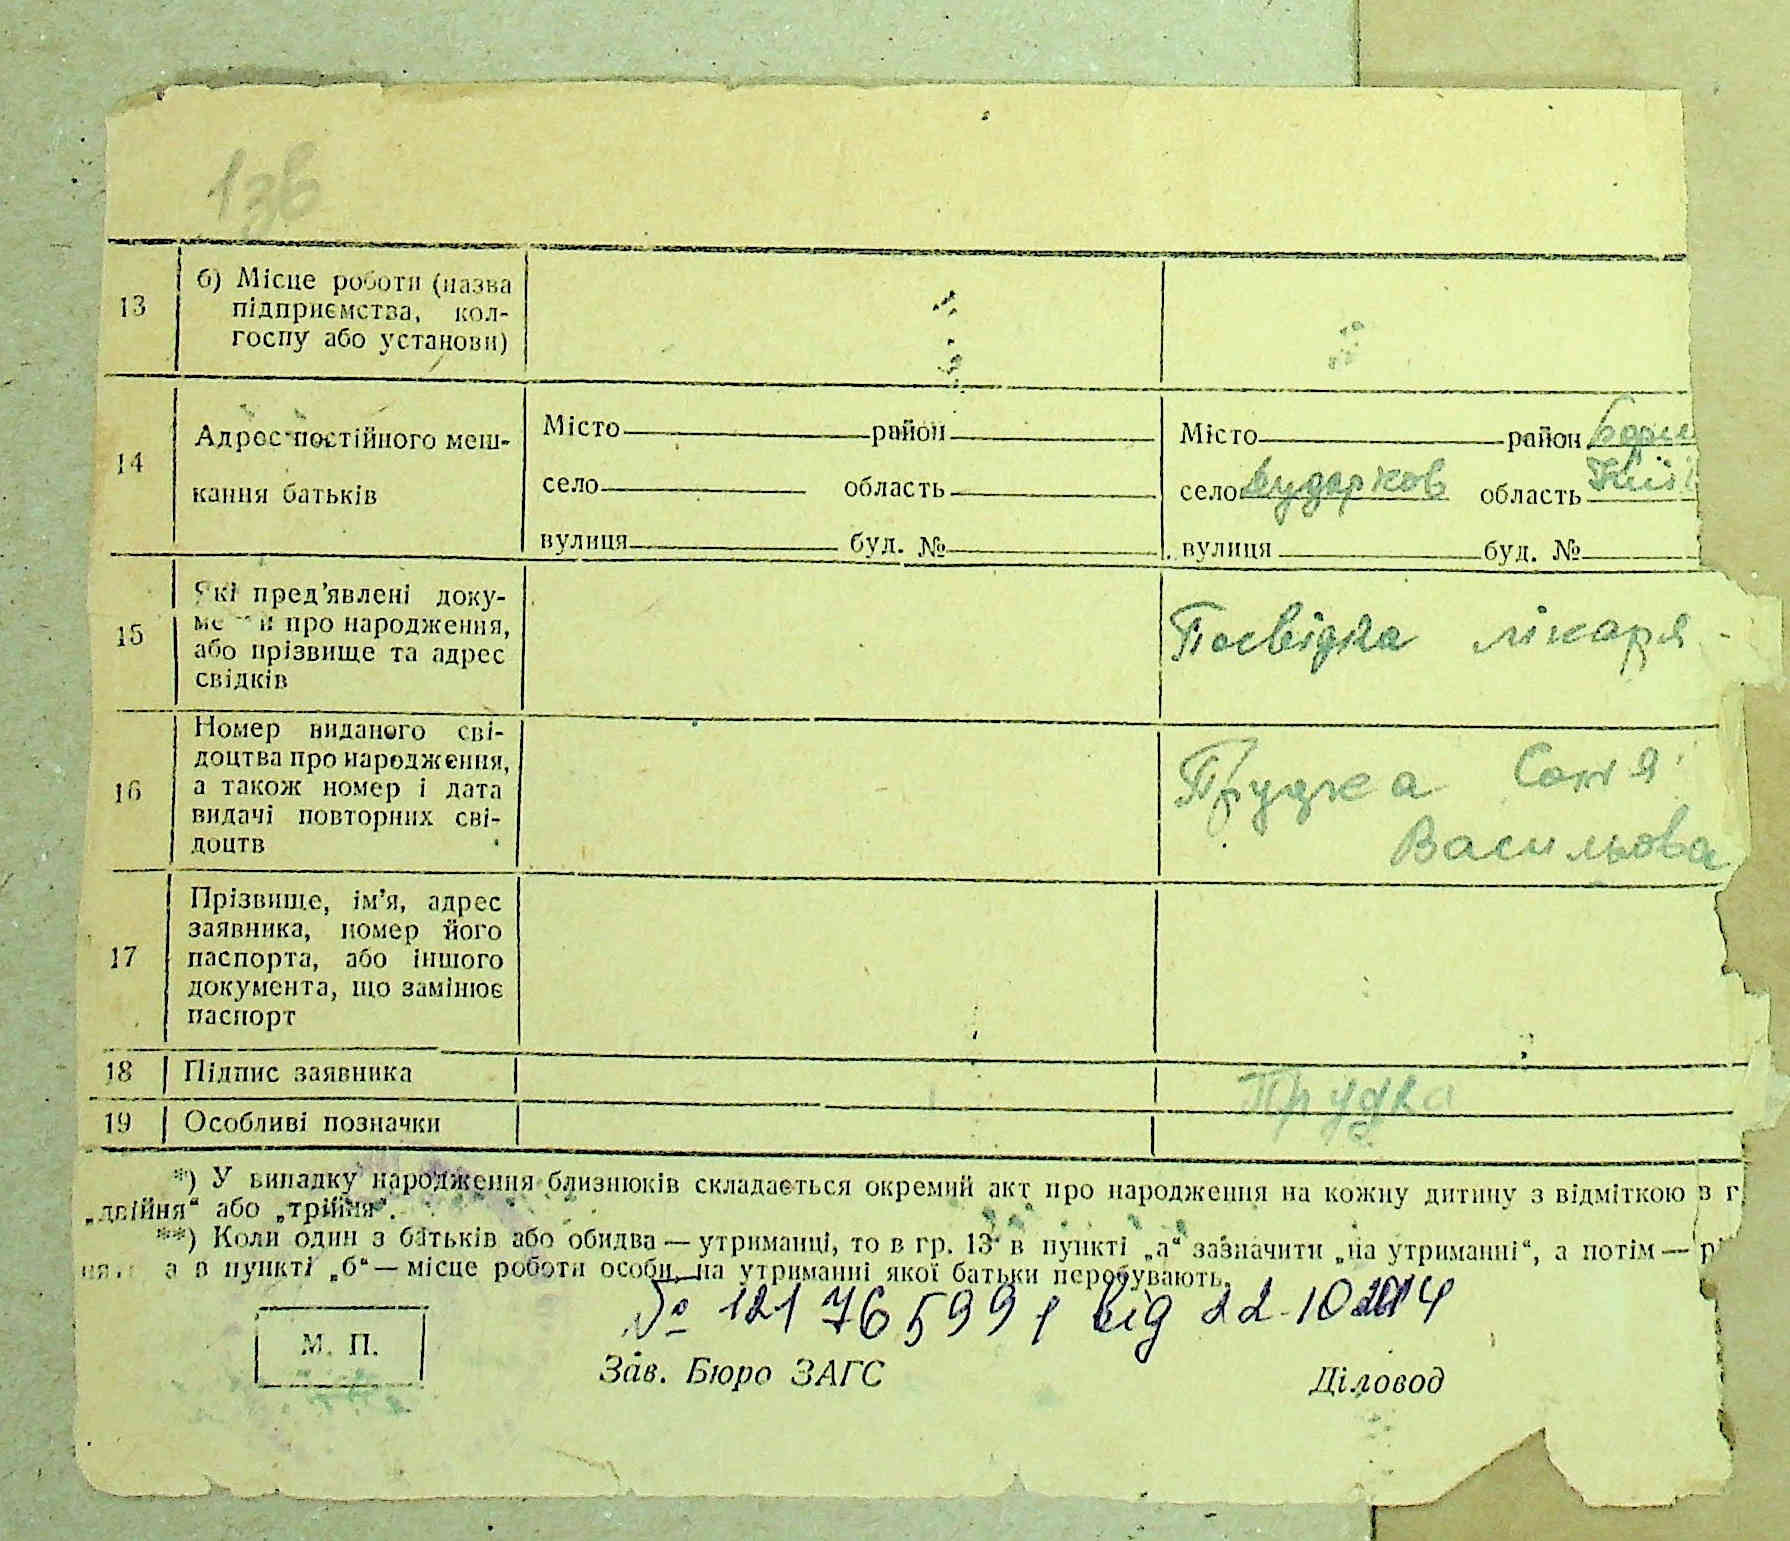 13в
13
б) Місце роботи (назва
підприємства, кол-
госпу або установи)
14
Адрес постійного меш-
кання батьків
Місто район
село область
вулиця буд. №
Місто район Бори
село Дударков область Київ
вулиця буд. №
15
Які пред'явлені доку-
про народження,
або прізвище та адрес
свідків
Посвідка лікаря
16
Номер виданого сві-
доцтва про народження,
а також номер і дата
видачі повторних сві-
доцтв
Прудка Соня
Васильова
17
Прізвище, ім'я, адрес
заявника, номер його
паспорта, або іншого
документа, що замінює
паспорт
18 Підпис заявника
Прудка
19 Особливі позначки
*) У випадку народження близнюків складається окремий акт про народження на кожну дитину з відміткою в г
„двійня“ або „трійня“.
**) Коли один з батьків або обидва — утриманці, то в гр. 13 в пункті „а“ зазначити „на утриманні“, а потім —
а в пункті „б“ — місце роботи особи, на утриманні якої батьки перебувають.
№ 121 76599 від 22.10 2014
М. П.
Зав. Бюро ЗАГС
Діловод